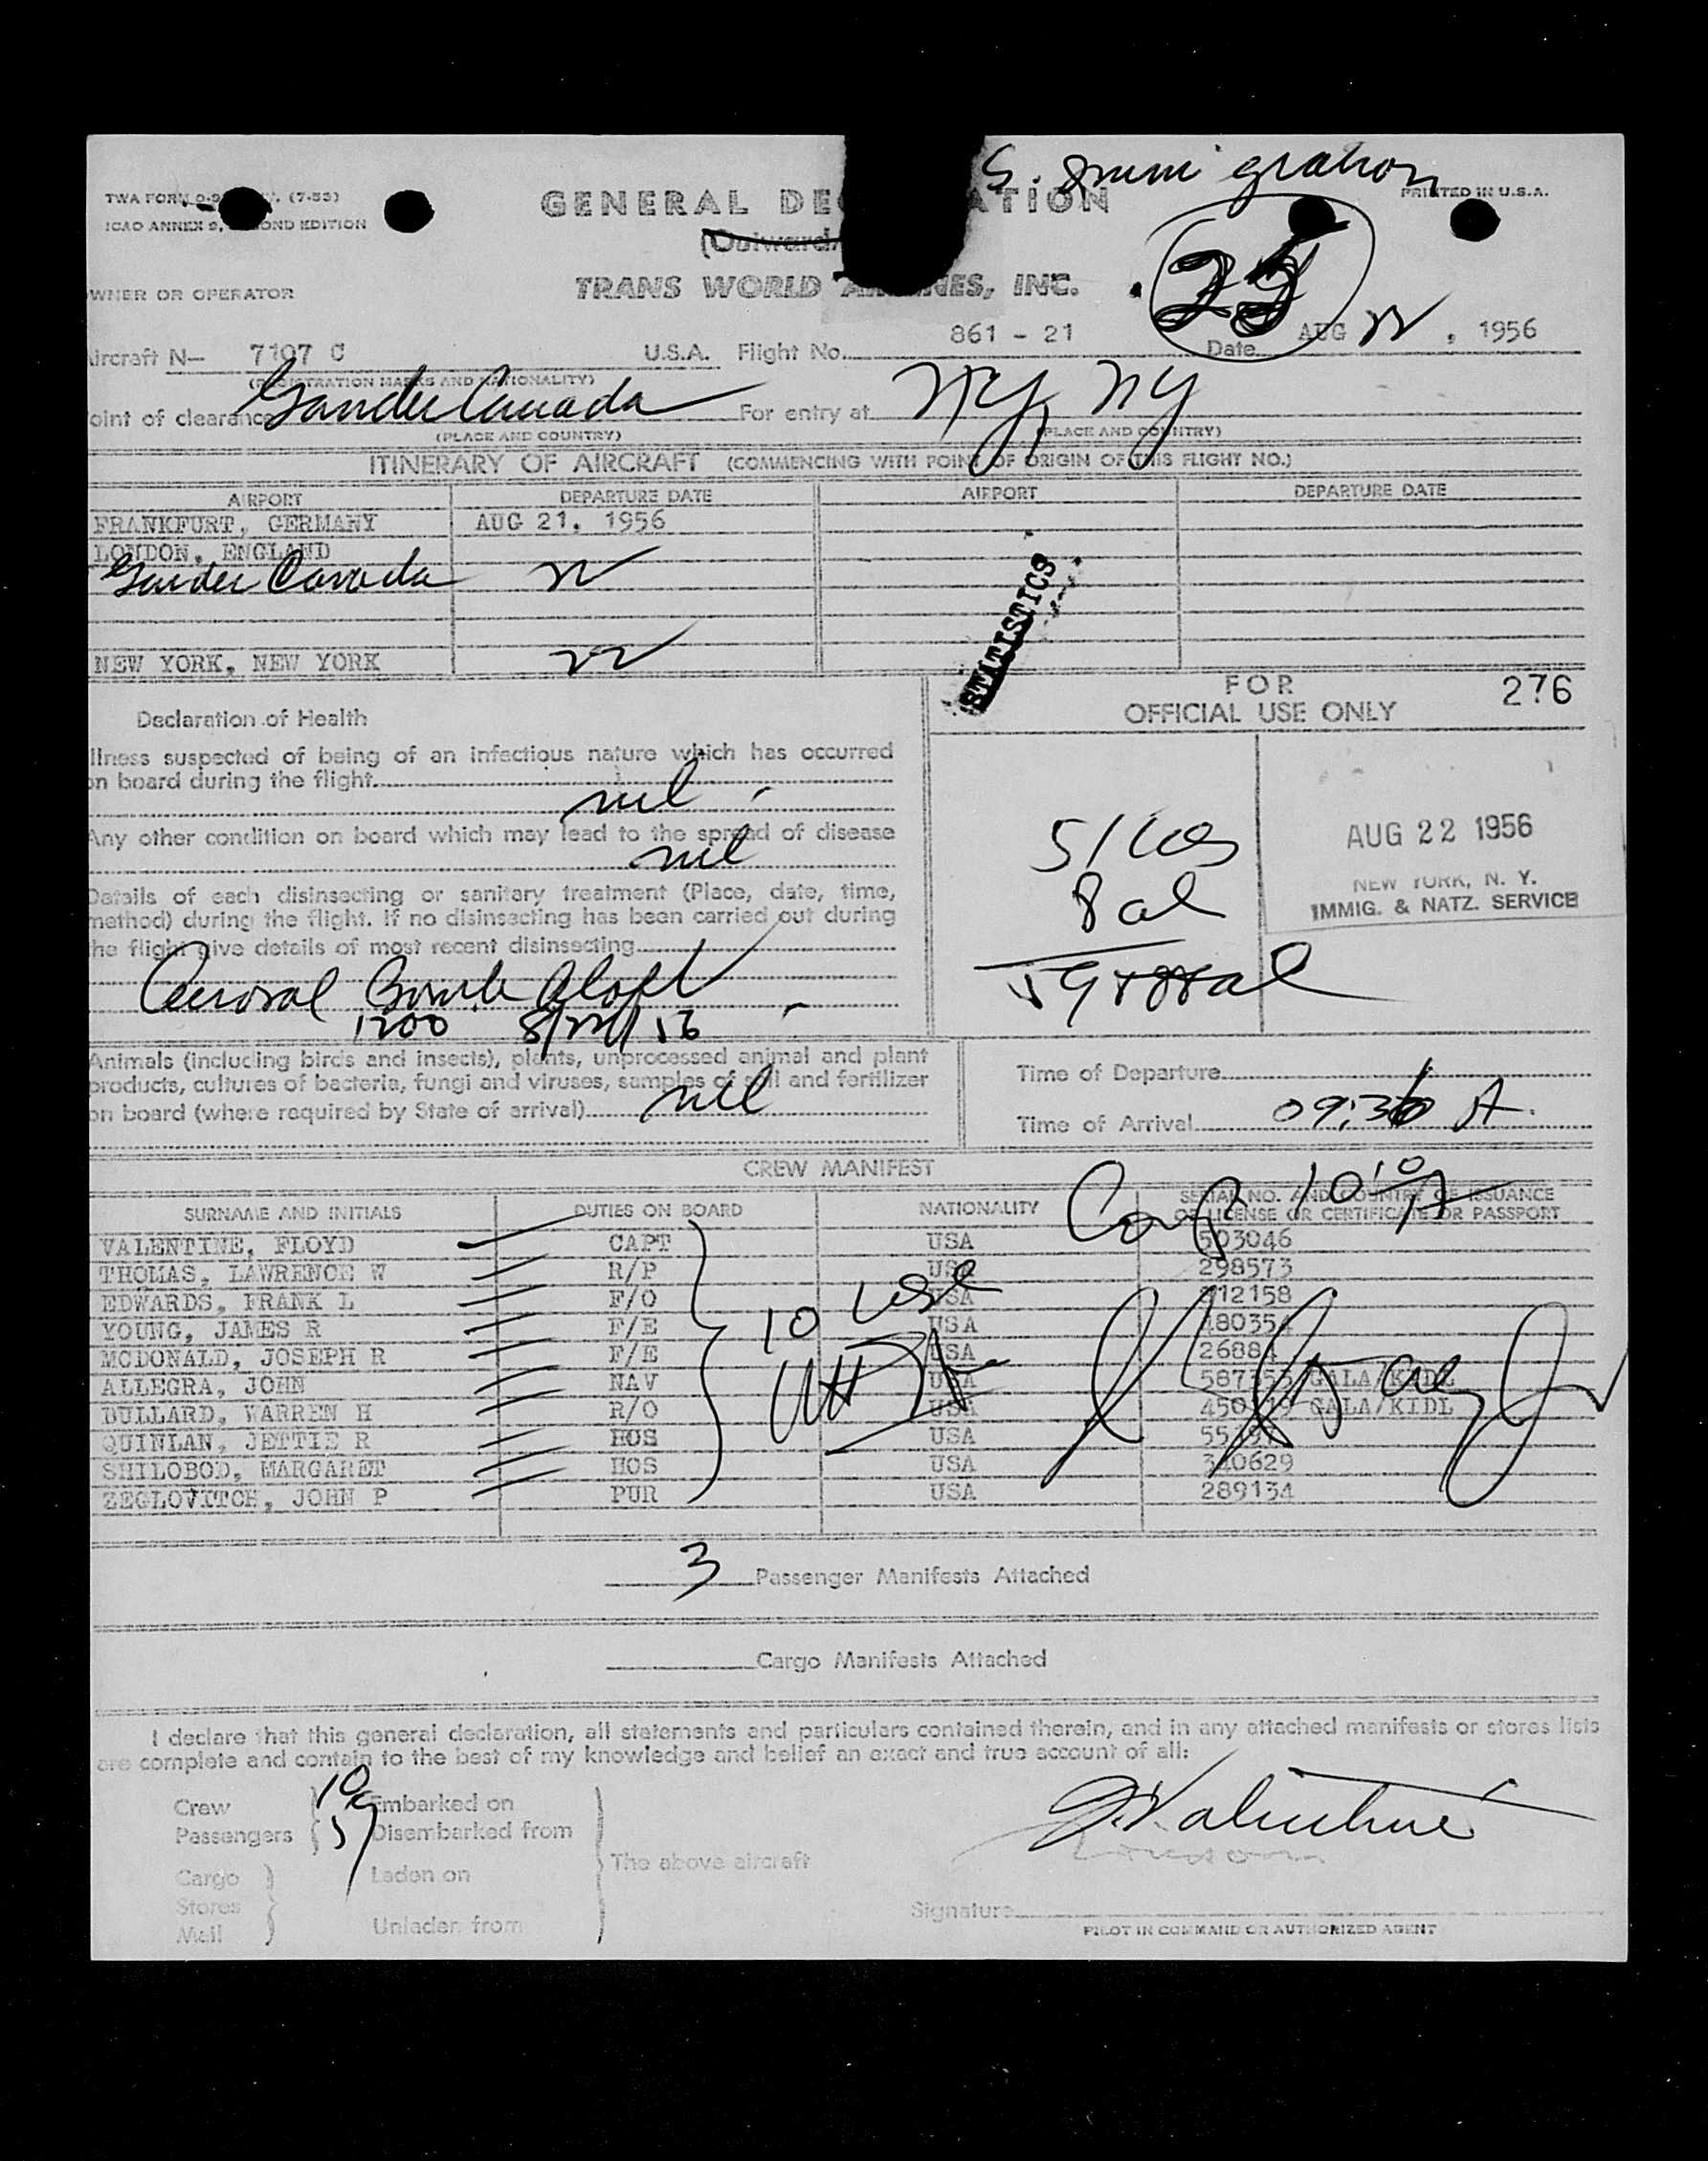 S. Immigration
TWA FORM (7-53)
PRINTED IN U.S.A.
GENERAL DE ATION
ICAO ANNEX 9, OND EDITION
(Outward/
WNER OR OPERATOR
TRANS WORLD NES, INC.
ircraft N— 7107 C U.S.A. Flight No. 861 - 21 Date AUG 22, 1956
(REGISTRATION MARKS AND NATIONALITY)
oint of clearance Gander Canada For entry at NY, NY
(PLACE AND COUNTRY) (PLACE AND COUNTRY)
ITINERARY OF AIRCRAFT (COMMENCING WITH POINT OF ORIGIN OF THIS FLIGHT NO.)
AIRPORT DEPARTURE DATE AIRPORT DEPARTURE DATE
FRANKFURT, GERMANY AUG 21, 1956
LONDON, ENGLAND
Gander Canada 22
NEW YORK, NEW YORK 22
STATISTICS
FOR
OFFICIAL USE ONLY
276
Declaration of Health
llness suspected of being of an infectious nature which has occurred
on board during the flight
nil
Any other condition on board which may lead to the spread of disease
nil
Details of each disinsecting or sanitary treatment (Place, date, time,
method) during the flight. If no disinsecting has been carried out during
he flight give details of most recent disinsecting
Aerosol Bomb Aloft
1200 8/22/56
51 USs
8 al
59 total
AUG 22 1956
NEW YORK, N. Y.
IMMIG. & NATZ. SERVICE
Animals (including birds and insects), plants, unprocessed animal and plant
products, cultures of bacteria, fungi and viruses, samples of soil and fertilizer
on board (where required by State of arrival) nil
Time of Departure
Time of Arrival 09:36 A.
CREW MANIFEST
SURNAME AND INITIALS DUTIES ON BOARD NATIONALITY SERIAL NO. AND COUNTRY OF ISSUANCE
OF LICENSE OR CERTIFICATE OR PASSPORT
VALENTINE, FLOYD CAPT USA 503046
THOMAS, LAWRENCE W R/P USA 298573
EDWARDS, FRANK L F/O USA 12158
YOUNG, JAMES R F/E USA 18035
MCDONALD, JOSEPH R F/E USA 2688
ALLEGRA, JOHN NAV USA 587 GALA/KIDL
BULLARD, WARREN H R/O USA 450 GALA/KIDL
QUINLAN, JETTIE R HOS USA
SHILOBOD, MARGARET HOS USA 340629
ZEGLOVITCH, JOHN P PUR USA 289134
10 USA
3 Passenger Manifests Attached
Cargo Manifests Attached
I declare that this general declaration, all statements and particulars contained therein, and in any attached manifests or stores lists
are complete and contain to the best of my knowledge and belief an exact and true account of all:
Crew 10 Embarked on
Passengers 59 Disembarked from
The above aircraft
Cargo Laden on
Stores
Mail Unladen from
F. Valentine
Signature
PILOT IN COMMAND OR AUTHORIZED AGENT